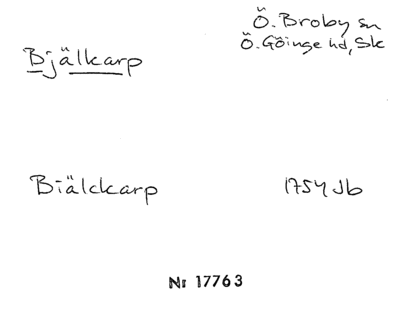 Bjälkarp
Ö. Broby sn
Ö. Göinge hd, Sk
Biälckarp
1754 Jb
Nr 17763